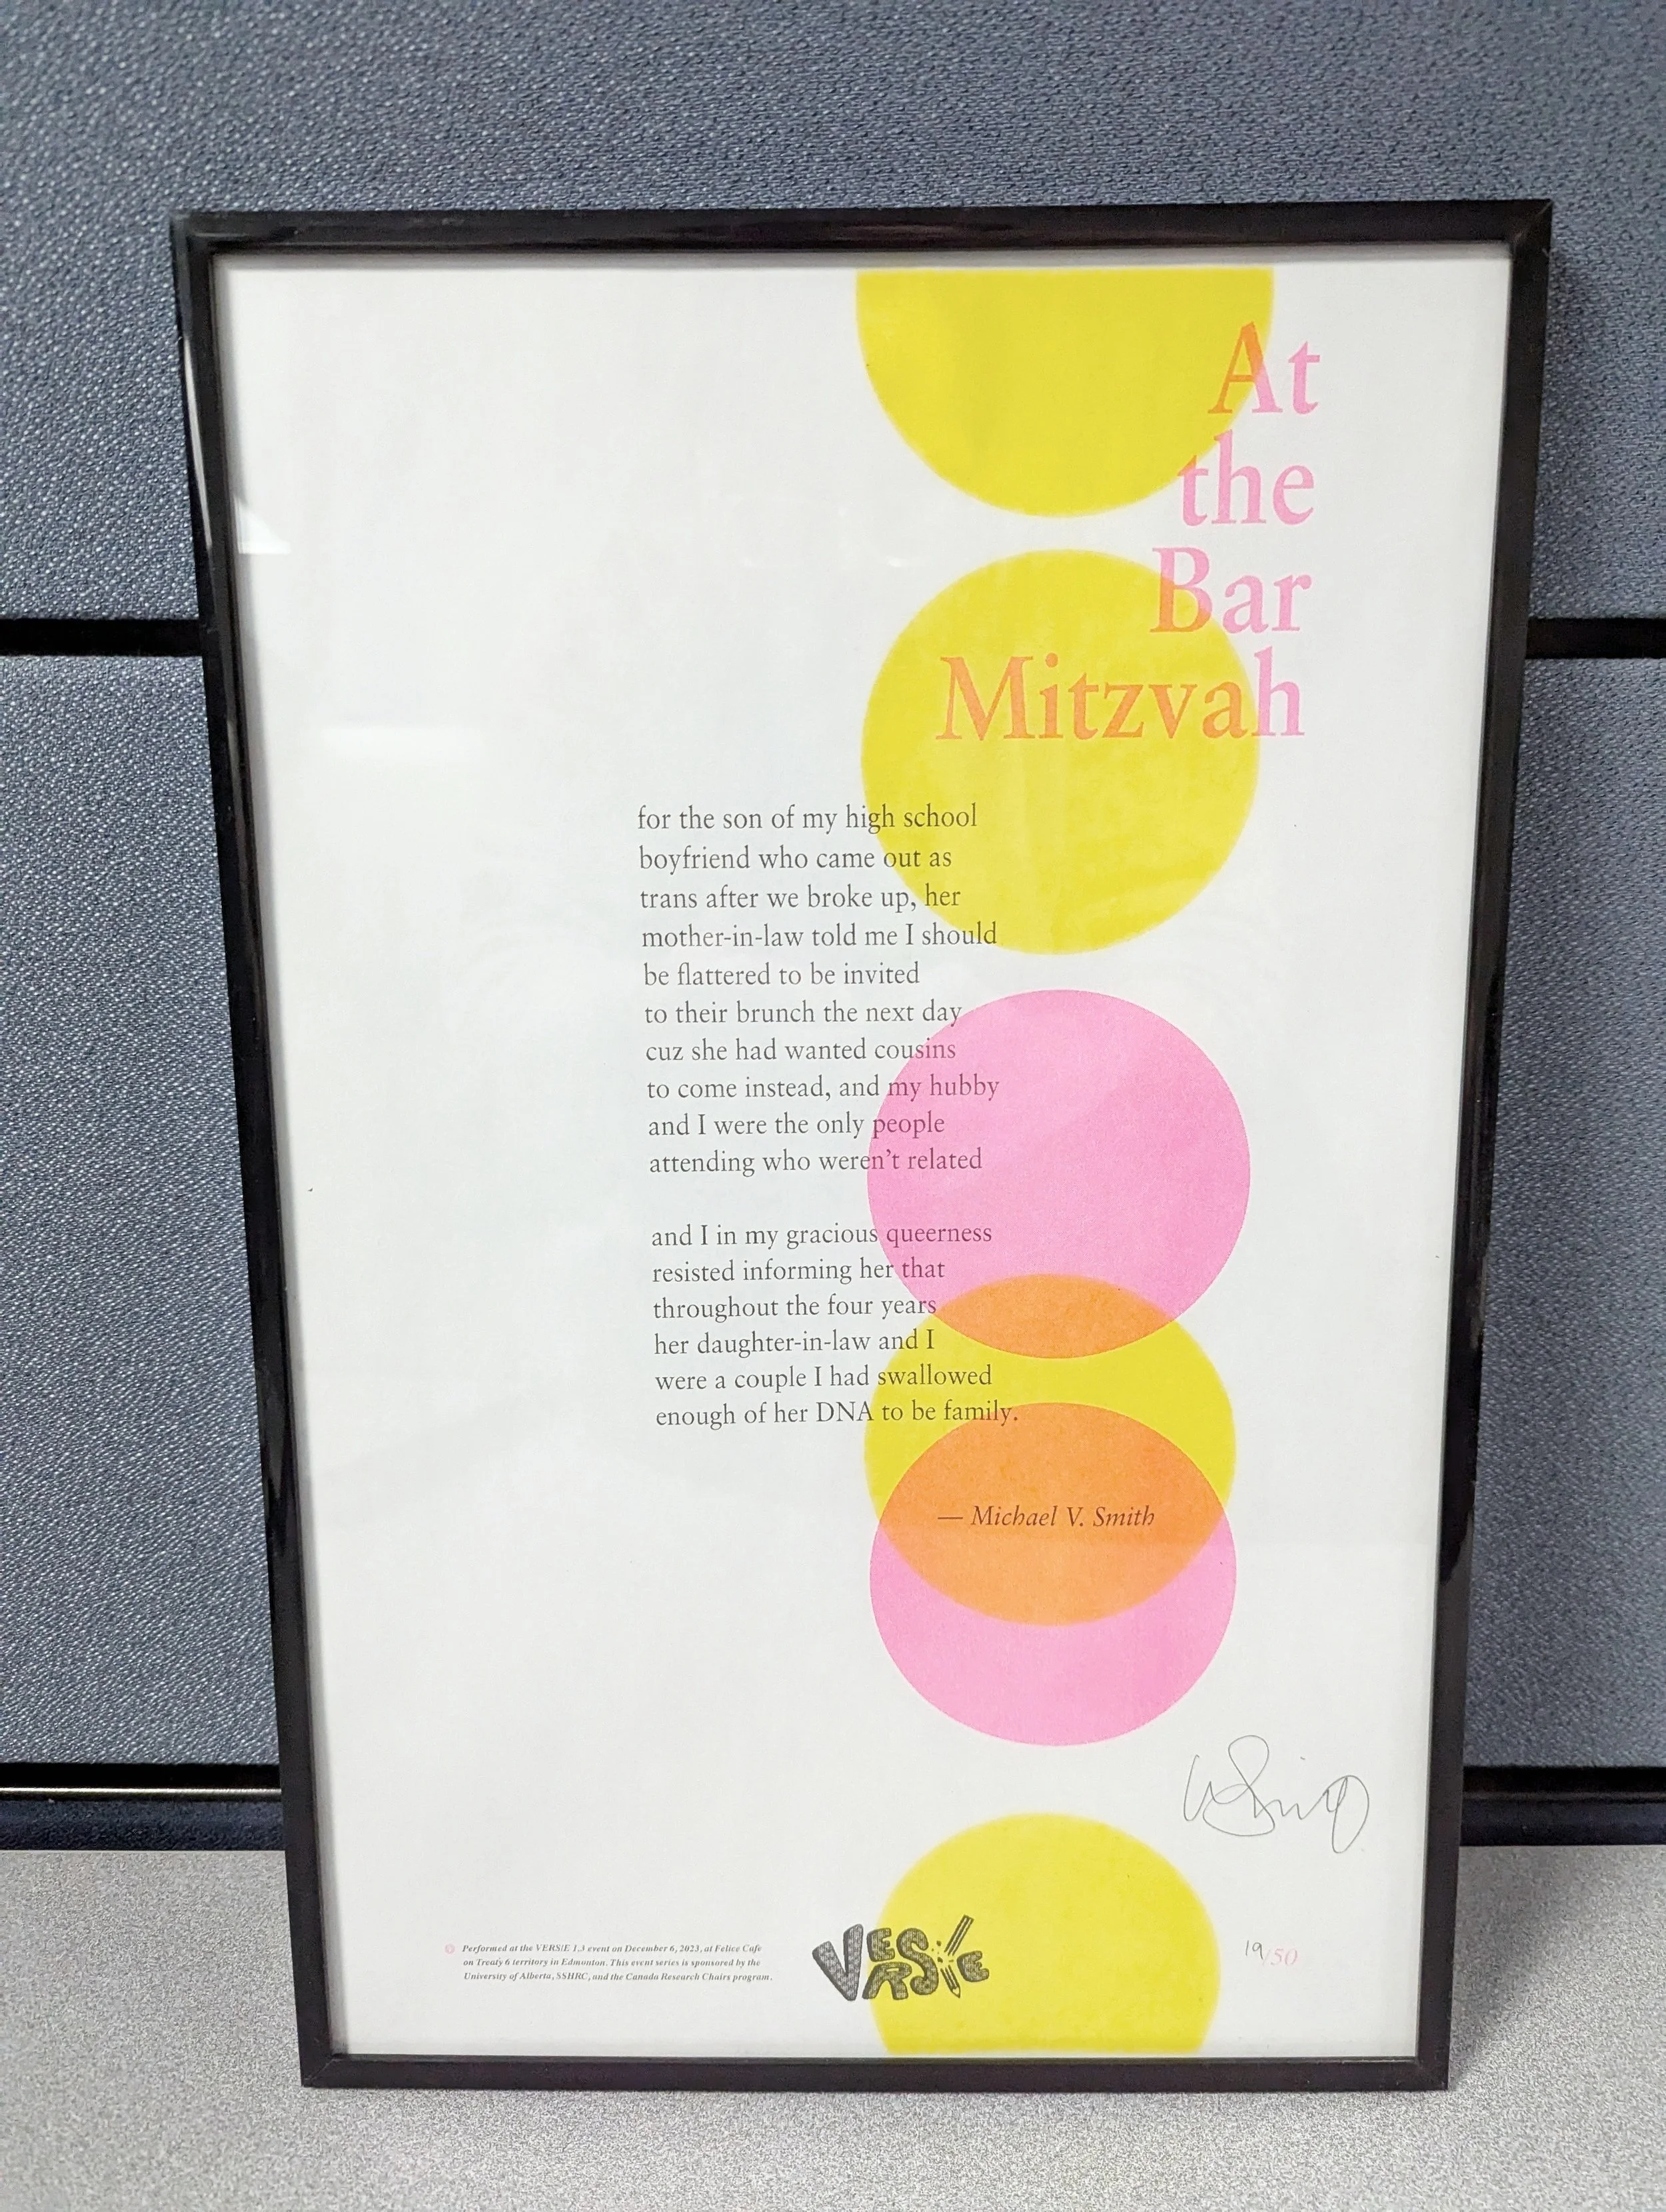 At
the
Bar
Mitzvah
for the son of my high school
boyfriend who came out as
trans after we broke up, her
mother-in-law told me I should
be flattered to be invited
to their brunch the next day
cuz she had wanted cousins
to come instead, and my hubby
and I were the only people
attending who weren't related
and I in my gracious queerness
resisted informing her that
throughout the four years
her daughter-in-law and I
were a couple I had swallowed
enough of her DNA to be family.
— Michael V. Smith
Performed at the VERS/E 1.3 event on December 6, 2023, at Felice Cafe
on Treaty 6 territory in Edmonton. This event series is sponsored by the
University of Alberta, SSHRC, and the Canada Research Chairs program.
VERS/E
19/50